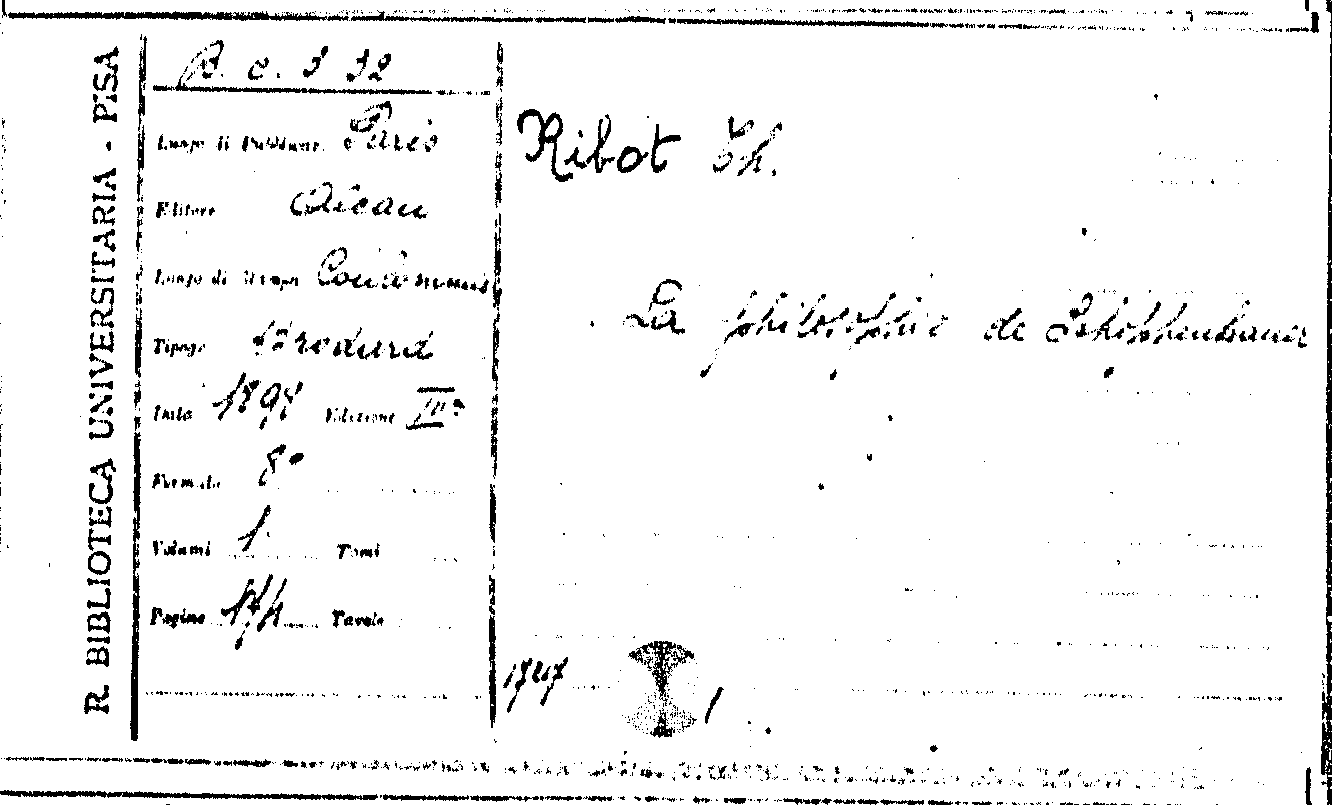 R. BIBLIOTECA UNIVERSITARIA - PISA
B. C. 3 32
Luogo di Pubblicaz. Paris
Editore Alcan
Luogo di Stampa Coulommiers
Tipogr. Brodard
Data 189 Edizione
Formato 8°
Volumi 1 Tomi
Pagine 174 Tavole
Ribot Th.
La philosophie de Schopenhauer
1